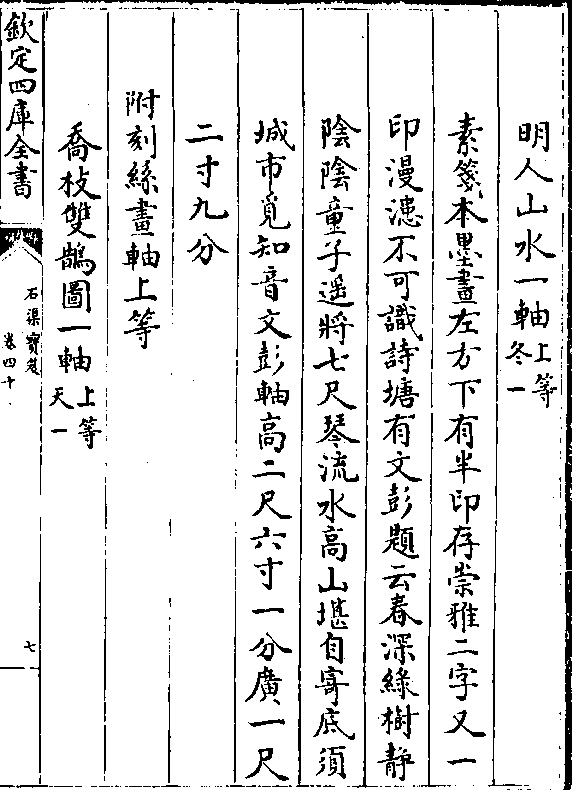 明人山水一軸上等冬一
素箋本墨畫左方下有半印存崇雅二字又一
印漫漶不可識詩塘有文彭題云春深綠樹靜
陰陰童子遥將七尺琴流水高山堪自寄底須
城市覓知音文彭軸高二尺六寸一分廣一尺
二寸九分
附刻絲畫軸上等
喬枝雙鵲圖一軸上等天一
欽定四庫全書
石渠寶笈
卷四十
七